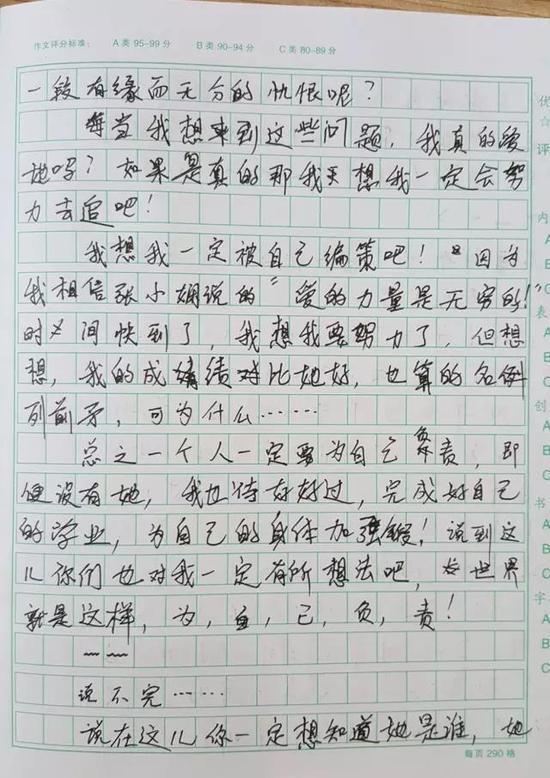 作文评分标准： A类 95-99分 B类 90-94分 C类 80-89分
一段有缘而无分的忧恨呢？
每当我想来到这些问题，我真的爱
她吗？如果是真的那我想我一定会努
力去追吧！
我想我一定被自己编策吧！因为
我相信张小娴说的“爱的力量是无穷的！”
时间快到了，我想我要努力了，但想
想，我的成绩对比她好，也算的名例
列前矛，可为什么……
总之一个人一定要为自己负责，即
便没有她，我也待好好过，完成好自己
的学业，为自己的身体加强锻！说到这
儿你们也对我一定有所想法吧，世界
就是这样，为，自，己，负，责！
~~
说不完……
说在这儿你一定想知道她是谁，她
每页 290 格
优
☆
评
内
A
B
C
表
A
B
C
创
A
B
C
书
A
B
字
A
B
C